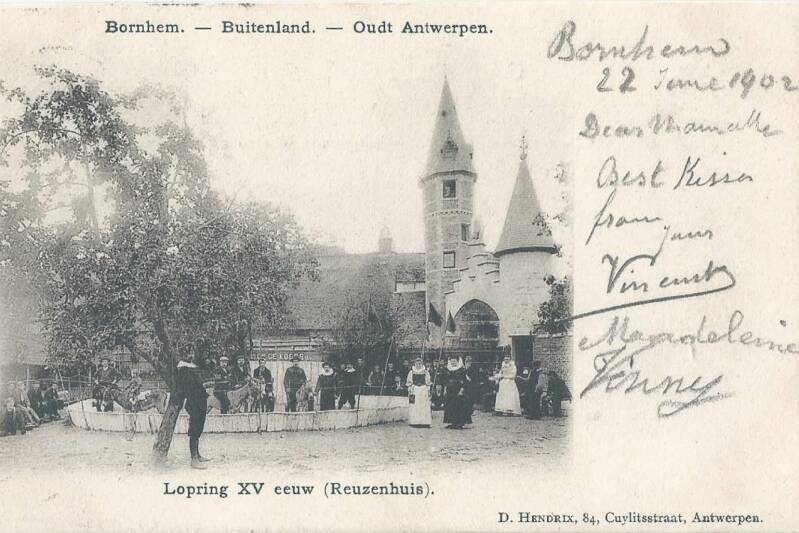 Bornhem. — Buitenland. — Oudt Antwerpen.
Bornhem
22 June 1902
Dear
Best Kisses
from
your
Vincent
Magdeleine
Lopring XV eeuw (Reuzenhuis).
D. Hendrix, 84, Cuylitsstraat, Antwerpen.